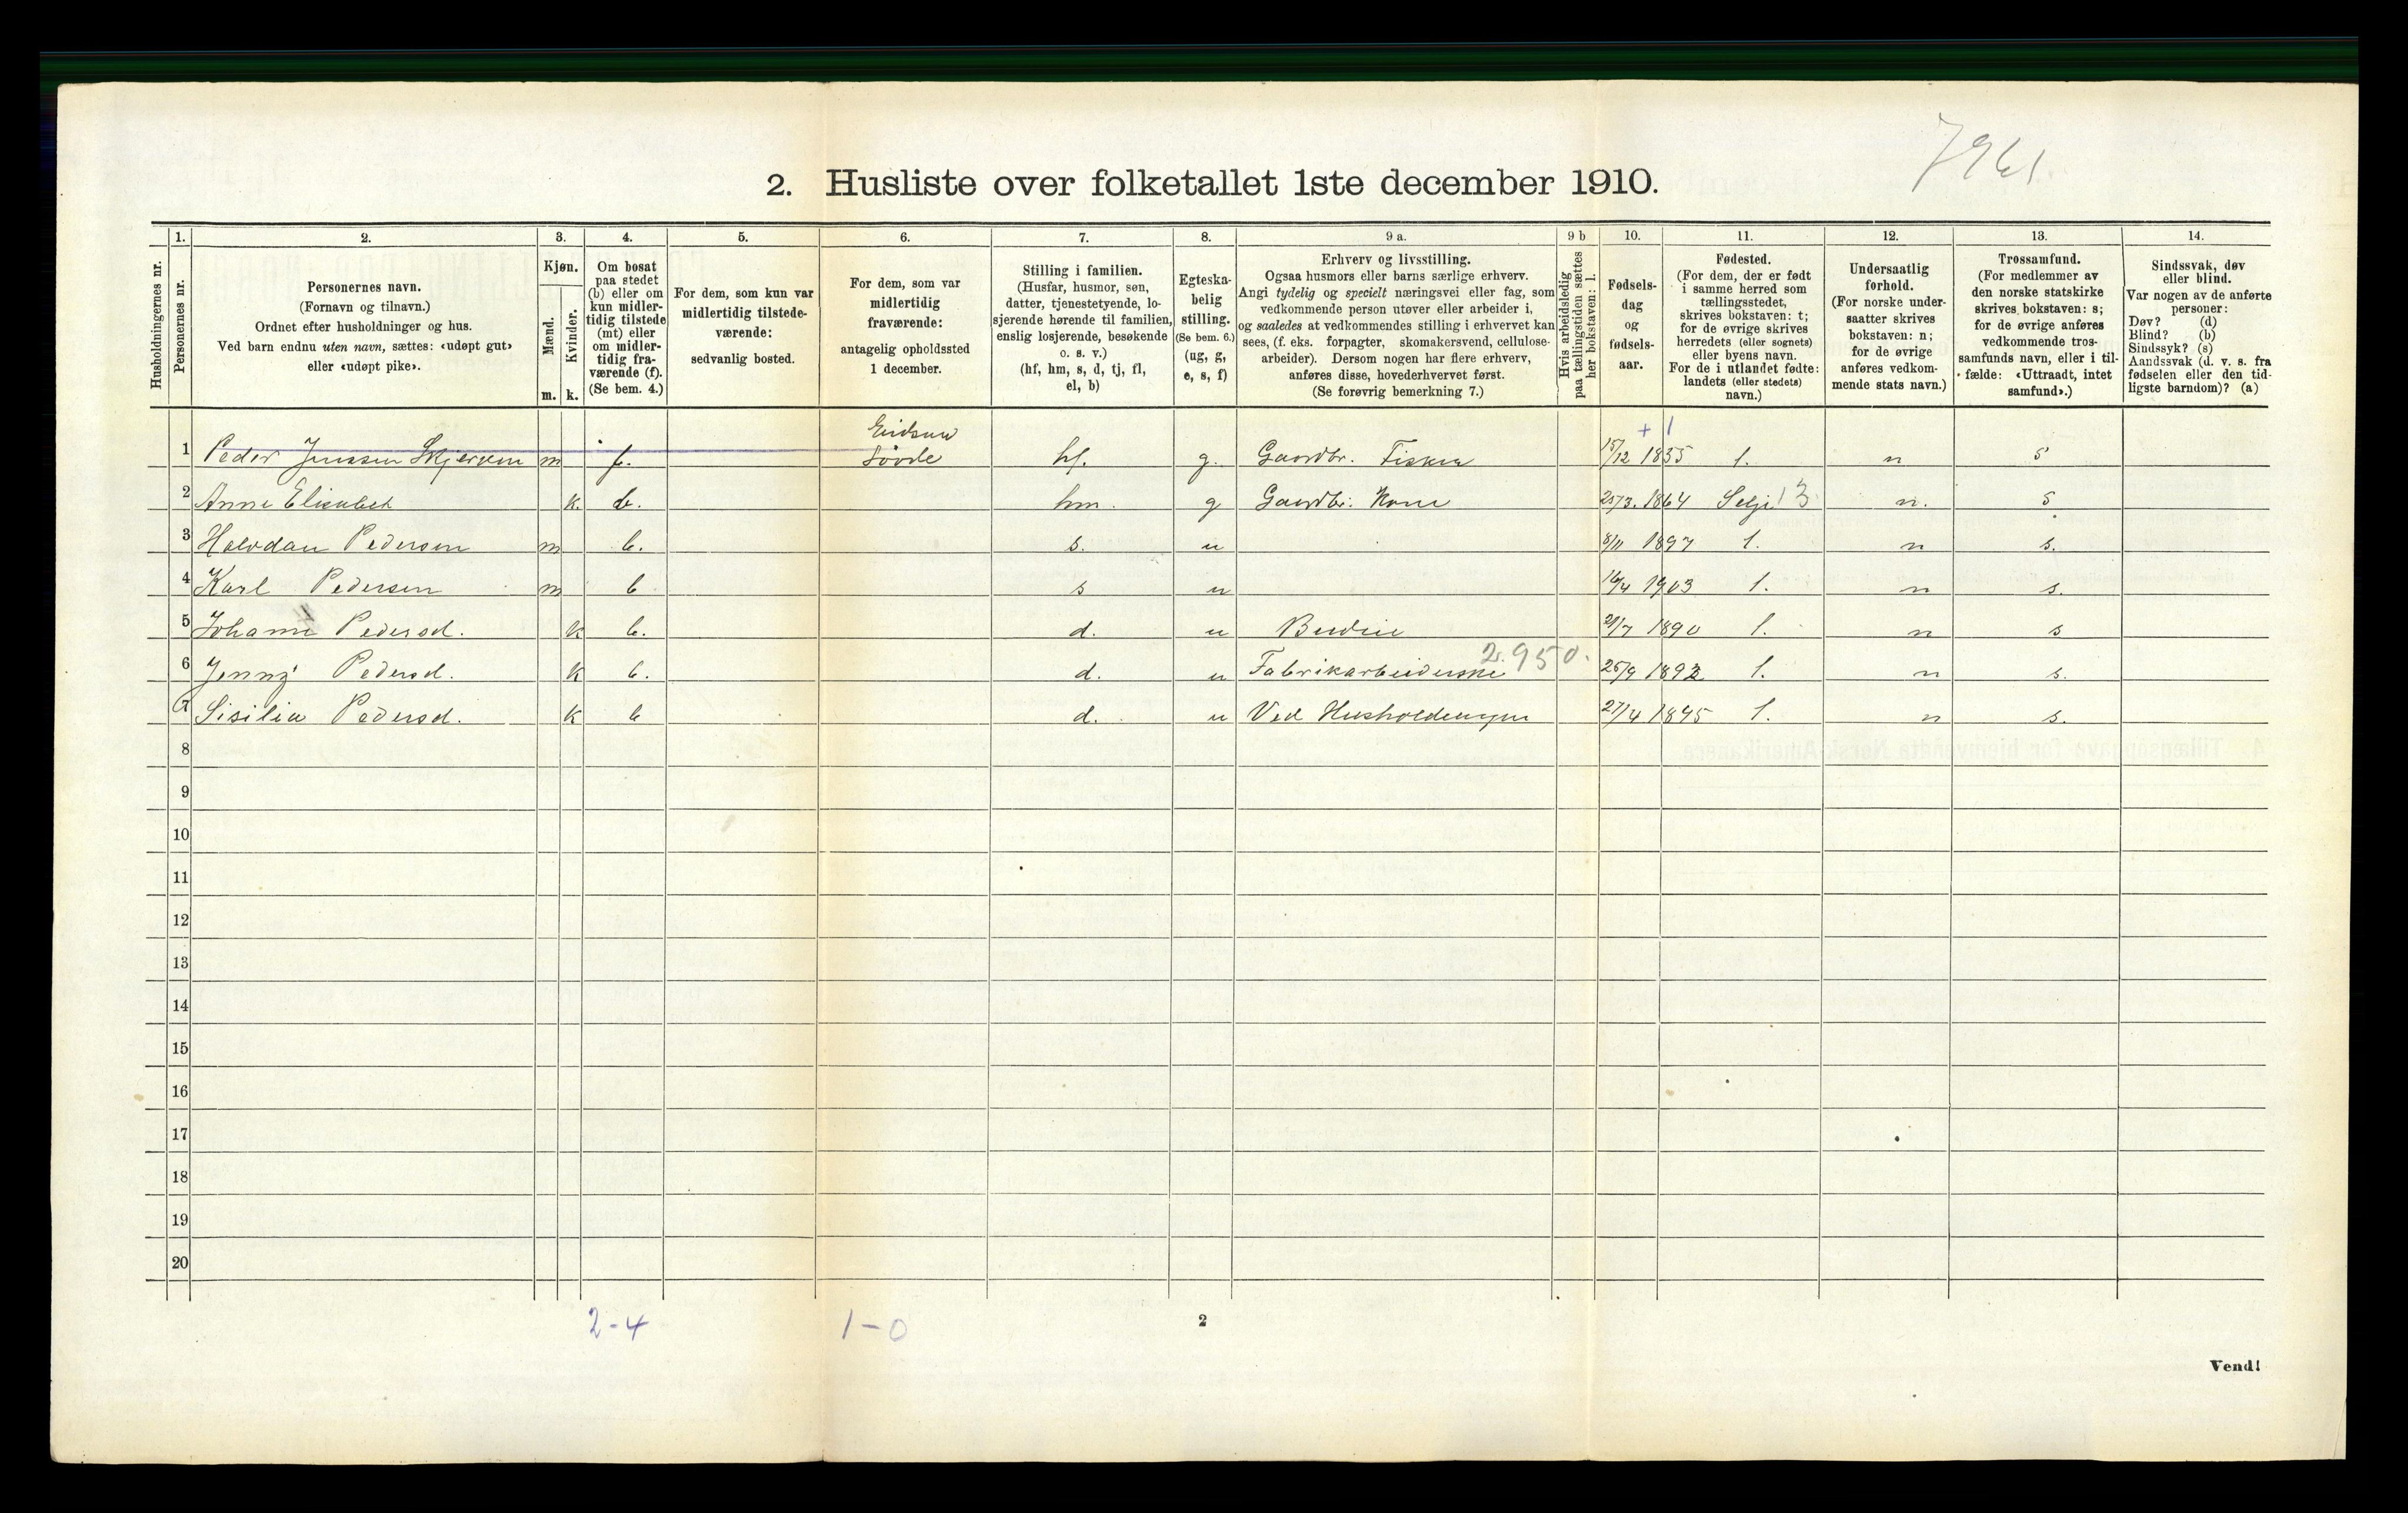 7961.
2. Husliste over folketallet 1ste december 1910.
Husholdningernes nr.
1. Personernes nr.
2. Personernes navn.
(Fornavn og tilnavn.)
Ordnet efter husholdninger og hus.
Ved barn endnu uten navn, sættes: «udøpt gut»
eller «udøpt pike».
3. Kjøn.
Mænd. m.
Kvinder. k.
4. Om bosat
paa stedet
(b) eller om
kun midler-
tidig tilstede
(mt) eller
om midler-
tidig fra-
værende (f).
(Se bem. 4.)
5. For dem, som kun var
midlertidig tilstede-
værende:
sedvanlig bosted.
6. For dem, som var
midlertidig
fraværende:
antagelig opholdssted
1 december.
7. Stilling i familien.
(Husfar, husmor, søn,
datter, tjenestetyende, lo-
sjerende hørende til familien,
enslig losjerende, besøkende
o. s. v.)
(hf, hm, s, d, tj, fl,
el, b)
8. Egteska-
belig
stilling.
(Se bem. 6.)
(ug, g,
e, s, f)
9 a. Erhverv og livsstilling.
Ogsaa husmors eller barns særlige erhverv.
Angi tydelig og specielt næringsvei eller fag, som
vedkommende person utøver eller arbeider i,
og saaledes at vedkommendes stilling i erhvervet kan
sees, (f. eks. forpagter, skomakersvend, cellulose-
arbeider). Dersom nogen har flere erhverv,
anføres disse, hovederhvervet først.
(Se forøvrig bemerkning 7.)
9 b Hvis arbeidsledig
paa tællingstiden sættes
her bokstaven: l.
10. Fødsels-
dag
og
fødsels-
aar.
11. Fødested.
(For dem, der er født
i samme herred som
tællingsstedet,
skrives bokstaven: t;
for de øvrige skrives
herredets (eller sognets)
eller byens navn.
For de i utlandet fødte:
landets (eller stedets)
navn.)
12. Undersaatlig
forhold.
(For norske under-
saatter skrives
bokstaven: n;
for de øvrige
anføres vedkom-
mende stats navn.)
13. Trossamfund.
(For medlemmer av
den norske statskirke
skrives bokstaven: s;
for de øvrige anføres
vedkommende tros-
samfunds navn, eller i til-
fælde: «Uttraadt, intet
samfund».)
14. Sindssvak, døv
eller blind.
Var nogen av de anførte
personer:
Døv? (d)
Blind? (b)
Sindssyk? (s)
Aandssvak (d. v. s. fra
fødselen eller den tid-
ligste barndom)? (a)
+ 1
1 Peder Jenssen Skjerven m f. hf. g. Gaardbr. Fisker 15/12 1855 t. n s
2 Anne Elisabet k. b. hm. g Gaardbr. Kone 25/3. 1864 Selje 13 n. s
3 Halvdan Pedersen m b. s. u 8/11 1897 t. n s.
4 Karl Pedersen m b s u 16/4 1903 t. n s.
5 Johanne Pedersd. k b. d. u Budeie 21/7 1890 t. n s
2.950.
6 Jenny Pedersd. k b. d. u Fabrikarbeiderske 25/9 1892 t. n s.
7 Sisilia Pedersd. k b d. u Ved Husholdningen 27/4 1895 t. n s.
8
9
10
11
12
13
14
15
16
17
18
19
20
2-4 1-0
2
Vend!